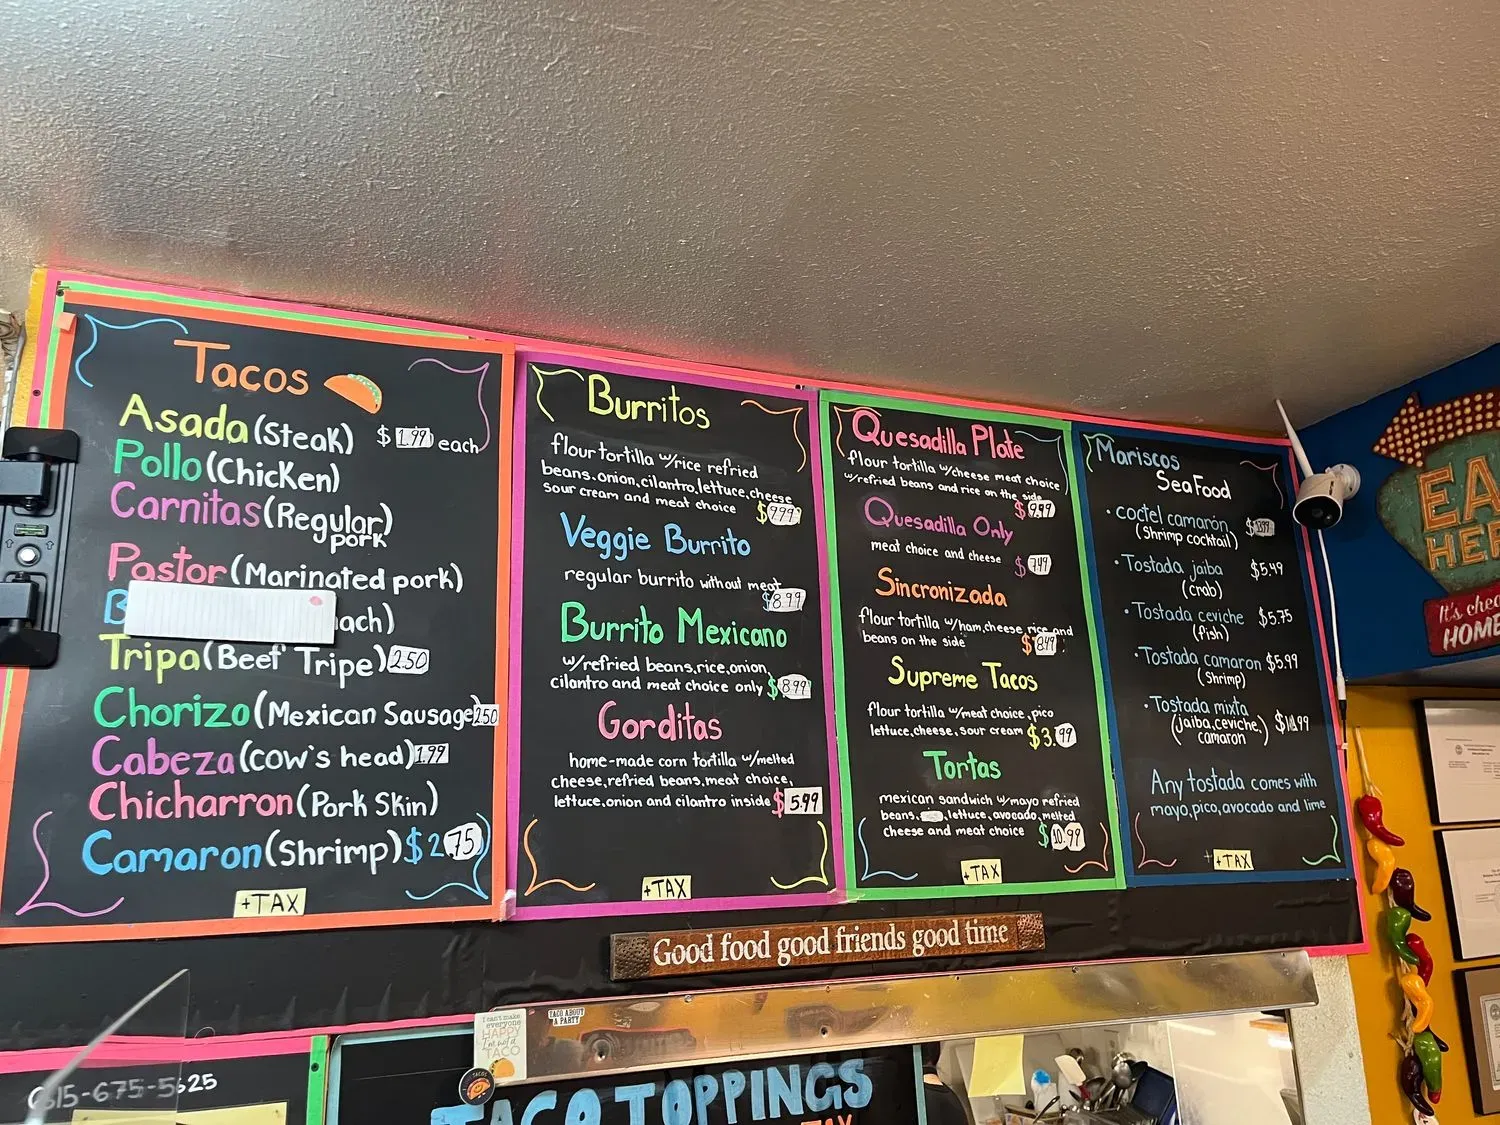 Tacos
Asada (Steak) $ 1.99 each
Pollo (Chicken)
Carnitas (Regular
pork)
Pastor (Marinated pork)
B ach)
Tripa (Beef Tripe) 2.50
Chorizo (Mexican Sausage) 2.50
Cabeza (cow's head) 1.99
Chicharron (Pork Skin)
Camaron (Shrimp) $ 2.75
+TAX
Burritos
flour tortilla w/rice refried
beans, onion, cilantro, lettuce, cheese
sour cream and meat choice $9.99
Veggie Burrito
regular burrito without meat
$8.99
Burrito Mexicano
w/refried beans, rice, onion,
cilantro and meat choice only $8.99
Gorditas
home-made corn tortilla w/melted
cheese, refried beans, meat choice,
lettuce, onion and cilantro inside $5.99
+TAX
Quesadilla Plate
flour tortilla w/cheese meat choice
w/refried beans and rice on the side
$9.99
Quesadilla Only
meat choice and cheese $7.49
Sincronizada
flour tortilla w/ham, cheese, rice and
beans on the side $8.49
Supreme Tacos
flour tortilla w/meat choice, pico
lettuce, cheese, sour cream $3.99
Tortas
mexican sandwich w/mayo refried
beans, lettuce, avocado, melted
cheese and meat choice $10.99
+TAX
Mariscos
SeaFood
• coctel camarón $
(shrimp cocktail)
• Tostada jaiba $5.49
(crab)
• Tostada ceviche $5.75
(fish)
• Tostada camaron $5.99
(shrimp)
• Tostada mixta
(jaiba, ceviche, camaron)
Any tostada comes with
mayo, pico, avocado and lime
+TAX
EA
HER
It's chea
HOME
Good food good friends good time
I can't make
everyone
HAPPY
I'm not a
TACO
TACO ABOUT
A PARTY
TACOS
615-675-5625
TACO TOPPINGS
TAX